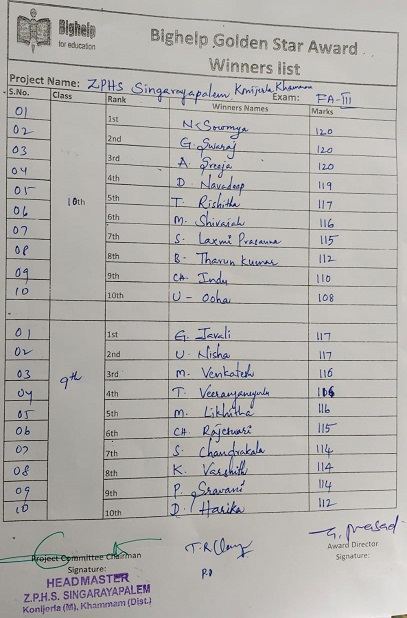 Bighelp
for education
Bighelp Golden Star Award
Winners list
Project Name: ZPHS Singarayapalem Konijerla Khammam
Exam: FA-III
S.No. Class Rank Winners Names Marks
01 1st N. Sowmya 120
02 2nd G. Swaraj 120
03 3rd A. Sreeja 120
04 4th D. Navadeep 119
05 10th 5th T. Rishitha 117
06 6th M. Shivaiah 116
07 7th S. Laxmi Prasanna 115
08 8th B. Tharun Kumar 112
09 9th CH Indu 110
10 10th U - Ooha 108
01 1st G. Javali 117
02 2nd U. Nisha 117
03 9th 3rd M. Venkatesh 116
04 4th T. Veeranjaneyulu 116
05 5th M. Likhitha 116
06 6th CH. Rajeswari 115
07 7th S. Chandrakala 114
08 8th K. Varshith 114
09 9th P. Sravani 114
10 10th D. Harika 112
Project Committee Chairman
Signature:
HEADMASTER
Z.P.H.S. SINGARAYAPALEM
Konijerla (M), Khammam (Dist.)
G. Prasad
Award Director
Signature: